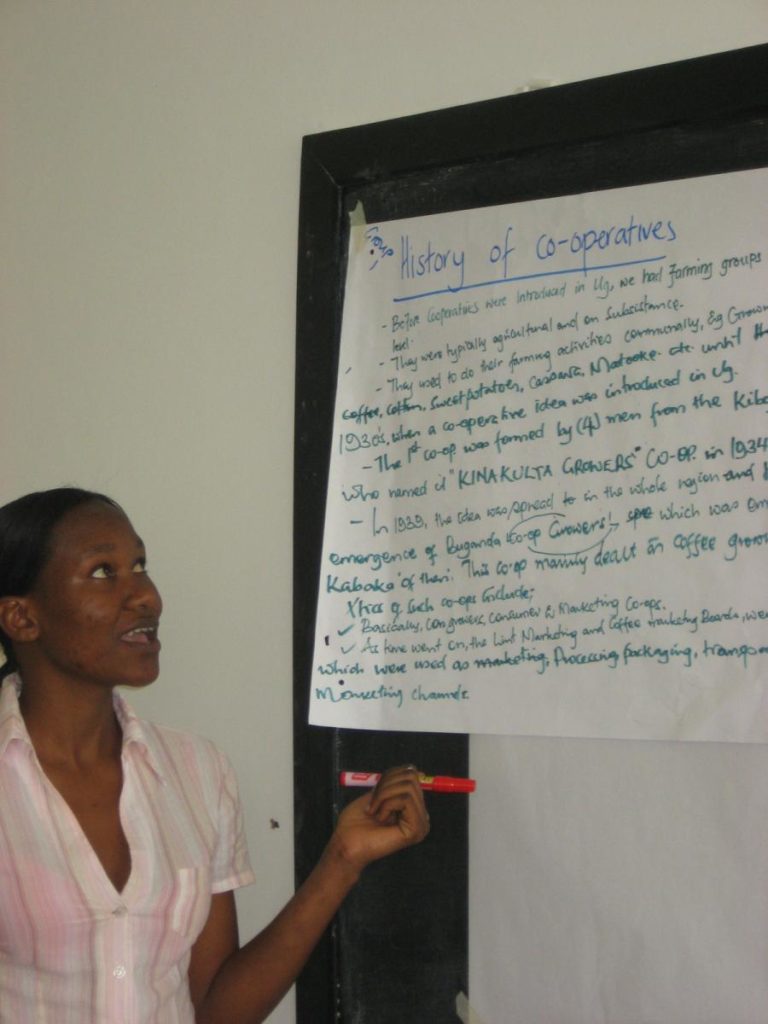 History of co-operatives
- Before Cooperatives were introduced in Ug, we had farming groups
level.
- They were typically agricultural and on Subsistance.
- They used to do their farming activities communally, Eg Grow
coffee, cotton, Sweetpotatoes, Cassava, Matooke. etc. until th
1930s, when a co-operative idea was introduced in Ug.
- The 1st co-op was formed by (4) men from the Kib
who named it "KINAKULTA GROWERS" CO-OP. in 1934
- In 1939, the idea was spread to in the whole region and
emergence of Buganda co-op Growers' which was em
Kabaka of then. This co-op mainly dealt in coffee grow
of such co-ops include;
✓ Basically, growers, consumer & Marketing Co-ops.
✓ As time went on, the Lint Marketing and Coffee marketing Boards, wer
which were used as marketing, Processing, packaging, transpo
Marketing channels.